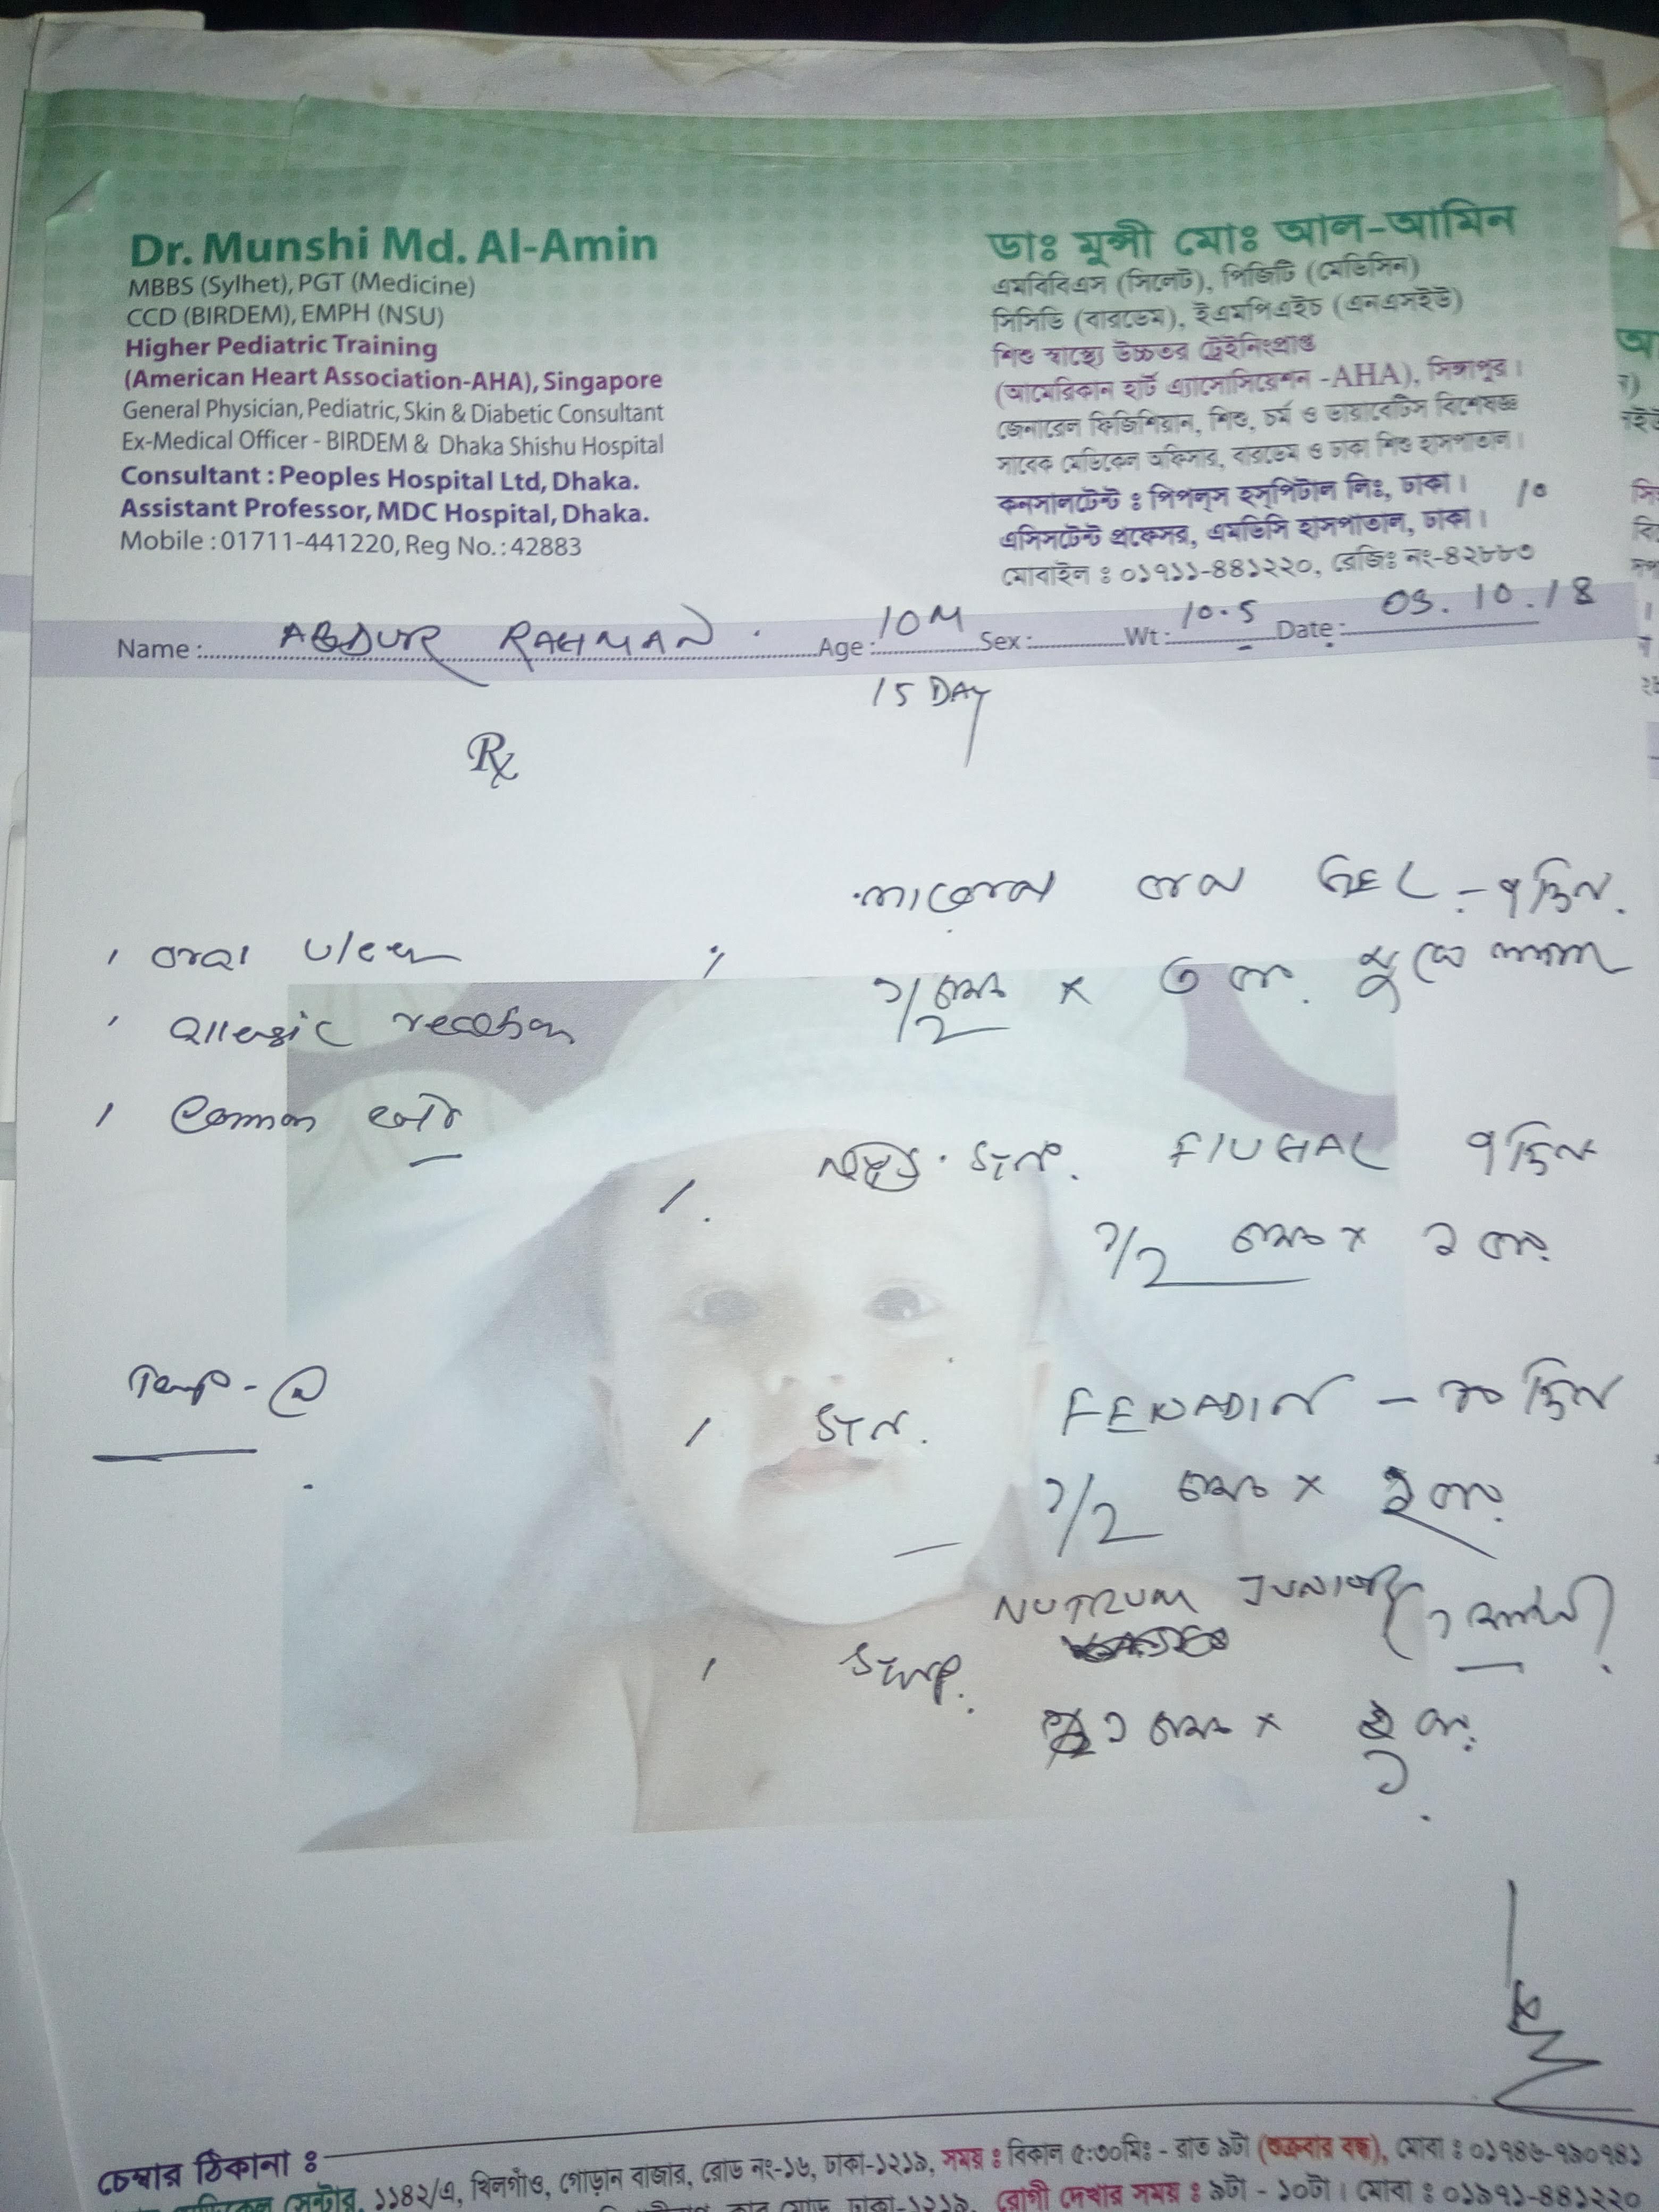 Dr. Munshi Md. Al-Amin
MBBS (Sylhet), PGT (Medicine)
CCD (BIRDEM), EMPH (NSU)
Higher Pediatric Training
(American Heart Association-AHA), Singapore
General Physician, Pediatric, Skin & Diabetic Consultant
Ex-Medical Officer - BIRDEM & Dhaka Shishu Hospital
Consultant : Peoples Hospital Ltd, Dhaka.
Assistant Professor, MDC Hospital, Dhaka.
Mobile : 01711-441220, Reg No. : 42883
ডাঃ মুন্সী মোঃ আল-আমিন
এমবিবিএস (সিলেট), পিজিটি (মেডিসিন)
সিসিডি (বারডেম), ইএমপিএইচ (এনএসইউ)
শিশু স্বাস্থ্যে উচ্চতর ট্রেইনিংপ্রাপ্ত
(আমেরিকান হার্ট এ্যাসোসিয়েশন -AHA), সিঙ্গাপুর।
জেনারেল ফিজিশিয়ান, শিশু, চর্ম ও ডায়াবেটিস বিশেষজ্ঞ
সাবেক মেডিকেল অফিসার, বারডেম ও ঢাকা শিশু হাসপাতাল।
কনসালটেন্ট ঃ পিপল্‌স হস্‌পিটাল লিঃ, ঢাকা।
এসিসটেন্ট প্রফেসর, এমডিসি হাসপাতাল, ঢাকা।
মোবাইল ঃ ০১৭১১-৪৪১২২০, রেজিঃ নং-৪২৮৮৩
Name : ABDUR RAHMAN Age : 10M Sex : Wt : 10.5 Date : 03.10.18
15 DAY
Rx
GEL - ৭ দিন.
oral ulcer
1/2 চামচ × ৩ বার. মুখে
allergic reaction
Common cold
FLUHAL ৭ দিন
1/2 চামচ × ২ বার.
Temp - N
FENADIN - ১০ দিন
1/2 চামচ × ২ বার.
NUTRUM JUNIOR
Syrup.
১ চামচ × ১ বার.
চেম্বার ঠিকানা ঃ
১১৪২/এ, খিলগাঁও, গোড়ান বাজার, রোড নং-১৬, ঢাকা-১২১৯, সময় ঃ বিকাল ৫:৩০মিঃ - রাত ৯টা (শুক্রবার বন্ধ), মোবা ঃ ০১৭৪৬-৭৯০৭৪১
ঢাকা-১২১৯, রোগী দেখার সময় ঃ ৯টা - ১০টা। মোবা ঃ ০১৯১১-৪৪১২২০